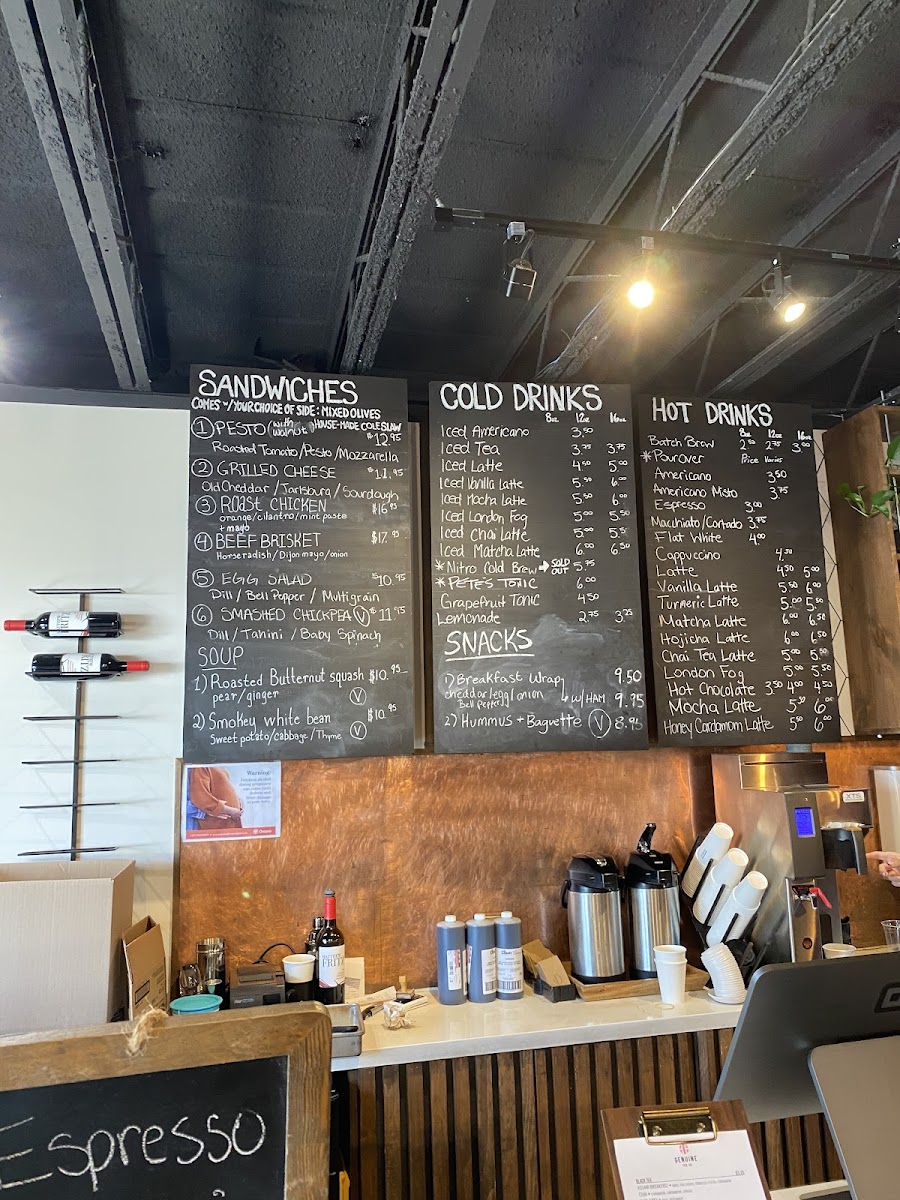 SANDWICHES
COMES w/ YOUR CHOICE OF SIDE: MIXED OLIVES
HOUSE-MADE COLESLAW
1 PESTO (with walnut) $12.95
Roasted Tomato/Pesto/Mozzarella
2 GRILLED CHEESE $11.95
Old Cheddar / Jarlsburg / Sourdough
3 ROAST CHICKEN $16.95
orange/cilantro/mint paste
+ mayo
4 BEEF BRISKET $17.95
Horseradish/Dijon mayo/onion
5 EGG SALAD $10.95
Dill / Bell Pepper / Multigrain
6 SMASHED CHICKPEA V $11.95
Dill / Tanini / Baby Spinach
SOUP
1) Roasted Butternut squash $10.95
pear/ginger V
2) Smokey white bean $10.95
Sweet potato/cabbage/Thyme V
COLD DRINKS
8oz 12oz 16oz
Iced Americano 3.50
Iced Tea 3.75 3.75
Iced Latte 4.50 5.00
Iced Vanilla Latte 5.50 6.00
Iced Mocha Latte 5.50 6.00
Iced London Fog 5.00 5.50
Iced Chai Latte 5.00 5.50
Iced Matcha Latte 6.00 6.50
*Nitro Cold Brew → SOLD OUT 5.75
*PETE'S TONIC 6.00
Grapefruit TONIC 4.50
Lemonade 2.75 3.25
SNACKS
1) Breakfast Wrap 9.50
cheddar/egg/onion
Bell Pepper ↳ w/ HAM 9.75
2) Hummus + Baguette V 8.95
HOT DRINKS
8oz 12oz 16oz
Batch Brew 2.50 2.75 3.00
*Pourover Price Varies
Americano 3.50
Americano Misto 3.75
Espresso 3.00
Macchiato/Cortado 3.75
Flat White 4.00
Cappuccino 4.50
Latte 4.50 5.00
Vanilla Latte 5.50 6.00
Turmeric Latte 5.00 5.50
Matcha Latte 6.00 6.50
Hojicha Latte 6.00 6.50
Chai Tea Latte 5.00 5.50
London Fog 5.00 5.50
Hot Chocolate 3.50 4.00 4.50
Mocha Latte 5.50 6.00
Honey Cardamom Latte 5.50 6.00
Warning:
Ontario
XTS
FRITZ
Espresso
GENUINE
TEA CO
BLACK TEA